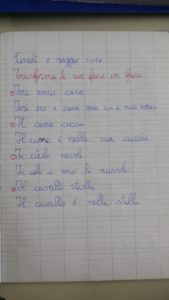 Venerdì 2 maggio
Trasforma le non frasi in frasi.
Ieri amici casa.
Ieri a casa mia i miei amici
Il cane cuccia.
Il cane è nella sua cuccia.
In cielo nuvole.
In cielo ci sono le nuvole.
Il cavallo stalla
Il cavallo è nella stalla